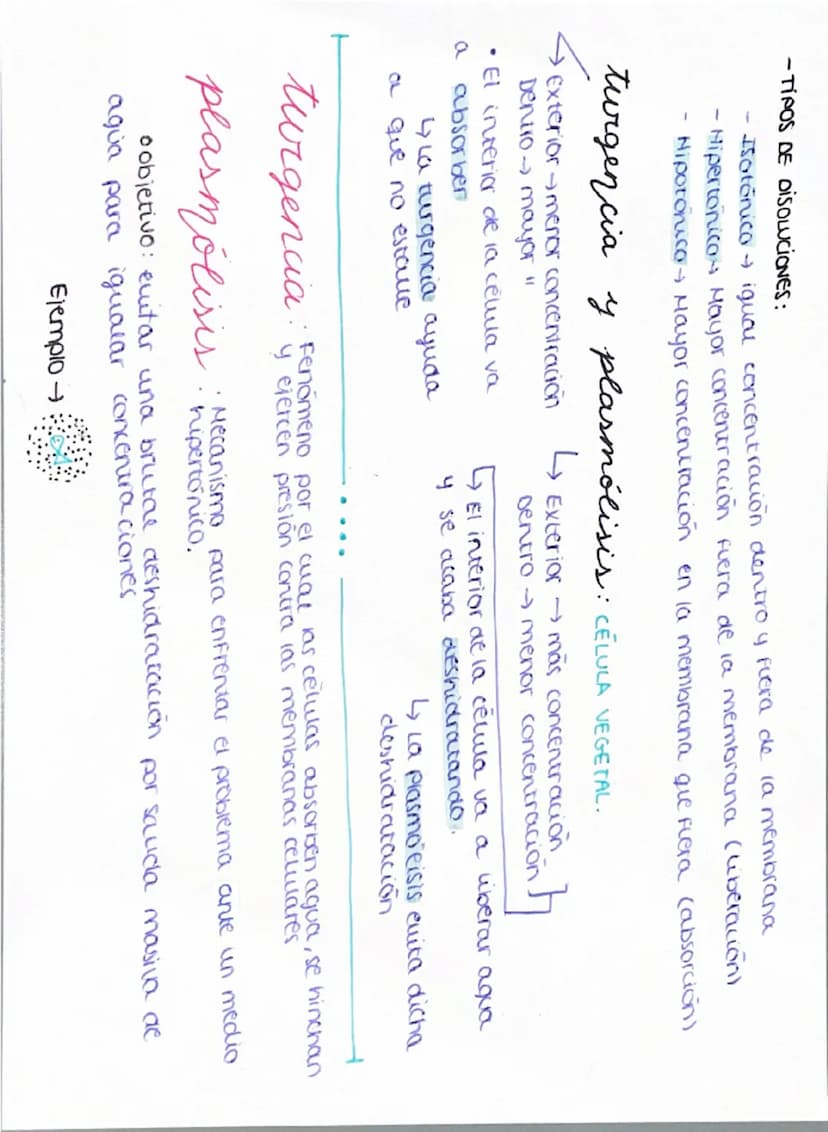 - TIPOS DE DISOLUCIONES:
- Isotónico → igual concentración dentro y fuera de la membrana
- Hipertónico → Mayor concentración fuera de la membrana (liberación)
- Hipotónico → Mayor concentración en la membrana que fuera (absorción)
turgencia y plasmólisis: CÉLULA VEGETAL.
↳ exterior → menor concentración
Dentro → mayor "
• El interior de la célula va
a absorber
↳ La turgencia ayuda
a que no estalle
↳ Exterior → más concentración
Dentro → menor concentración
↳ El interior de la célula va a liberar agua
y se acaba deshidratando.
↳ La plasmólisis evita dicha
deshidratación
turgencia: Fenómeno por el cual las células absorben agua, se hinchan
y ejercen presión contra las membranas celulares
plasmólisis: Mecanismo para enfrentar el problema ante un medio
hipertónico.
• objetivo: evitar una brutal deshidratación por salida masiva de
agua para igualar concentraciones
Ejemplo →